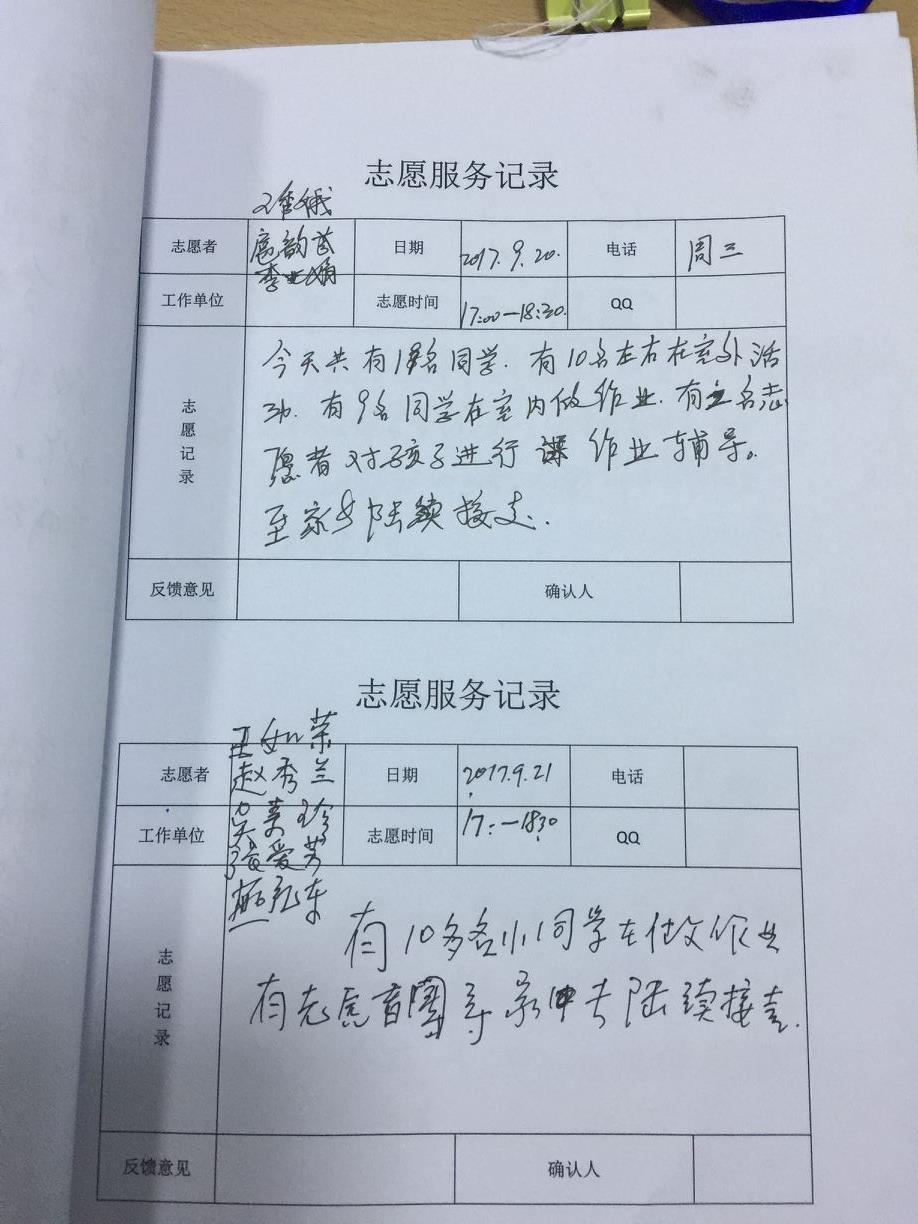 志愿服务记录
志愿者 扈韵茵 日期 2017.9.20. 电话 周三
工作单位 志愿时间 17:00—18:30. QQ
志愿记录
今天共有18名同学.有10名左右在室外活
动.有9名同学在室内做作业.有 名志
愿者对孩子进行 作业辅导。
至家长陆续接走.
反馈意见 确认人
志愿服务记录
王如荣
志愿者 赵秀兰 日期 2017.9.21 电话
工作单位 吴美珍 志愿时间 17:—18:30 QQ
张爱芳
志愿记录
有10多名小同学在做作业
有志愿者 导 家 陆续接走.
反馈意见 确认人